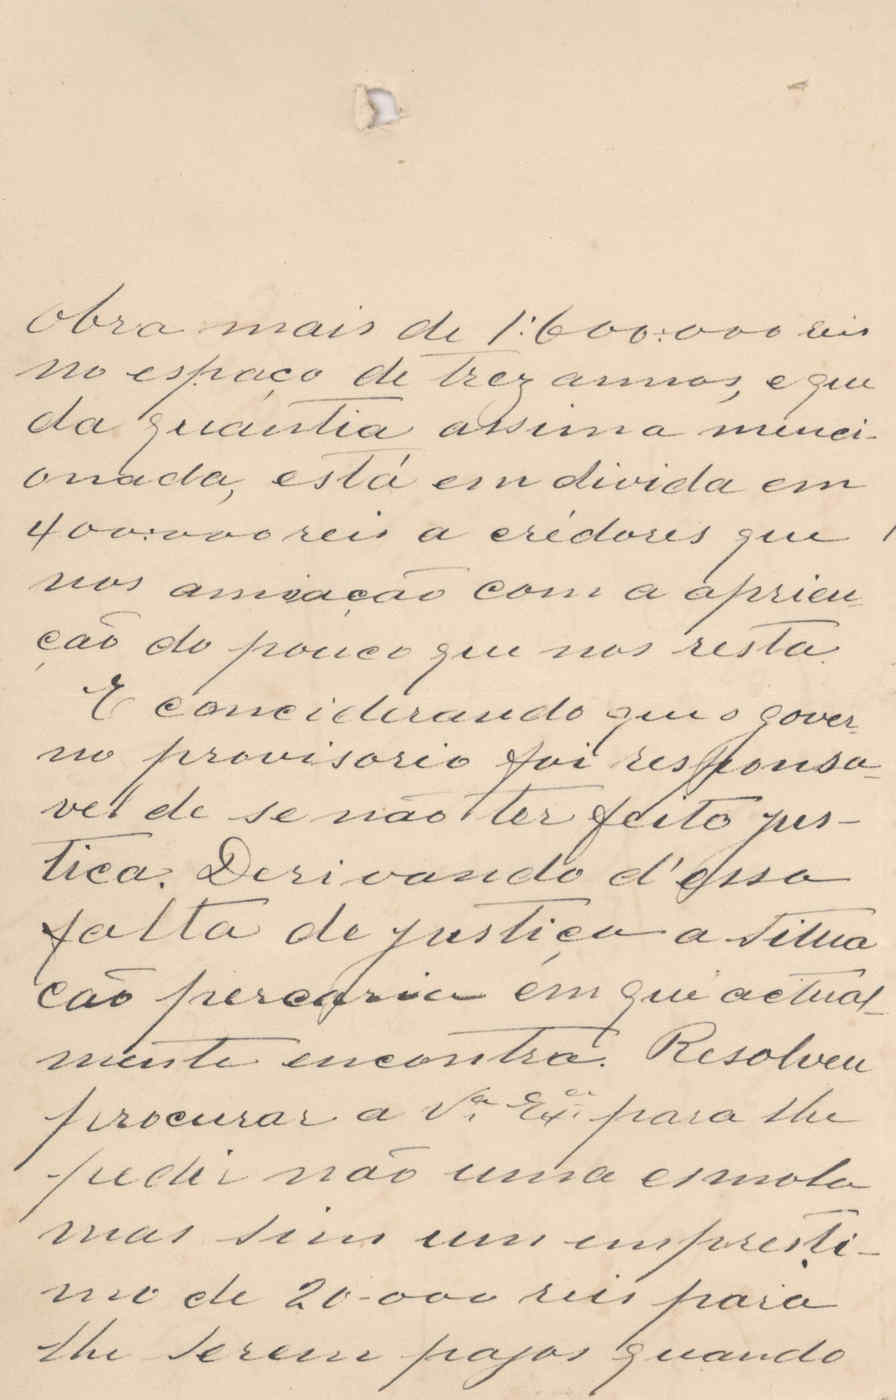 obra mais de 1:600:000 reis
no espaço de trez annos, e que
da quántia assima menci-
onada, está em divida em
400:000 reis a crédores que
nos amiação com a aprieu-
ção do pouco que nos resta.
E conciderando que o gover-
no provisorio foi responsa-
vel de se não ter feito jus-
tica. Derivando d'essa
falta de justiça a situa
cão percaria em que actual-
mente encontra. Resolveu
procurar a Vª. Exª. para lhe
pedir não uma esmola
mas sim um empresti-
mo de 20-000 reis para
lhe serem pagos quando